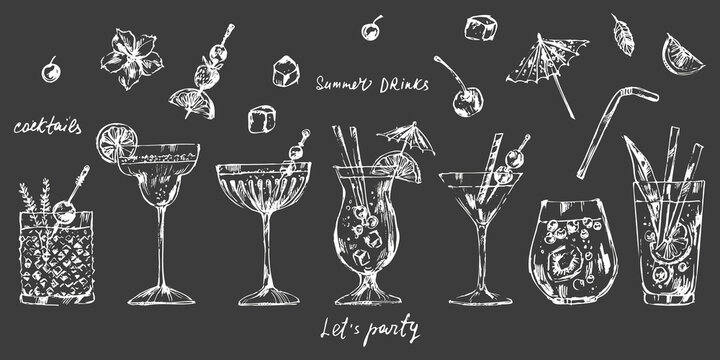 Summer Drinks
cocktails
Let's party